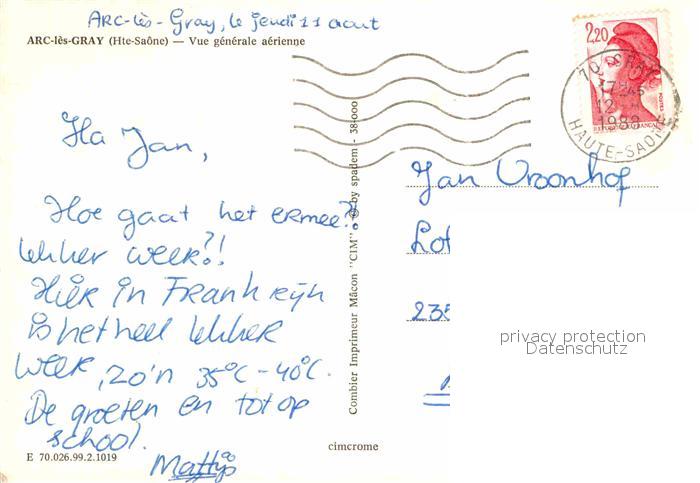 ARC-lès-Gray, le jeudi 11 aout
ARC-lès-GRAY (Hte-Saône) — Vue générale aérienne
Ha Jan,
Hoe gaat het ermee?!
lekker weer?!
Hier in Frankrijk
is het heel lekker
weer, zo'n 35°C - 40°C.
De groeten en tot op
school.
Mattijs
E 70.026.99.2.1019
Combier Imprimeur Mâcon "CIM" © by spadem - 38-000
cimcrome
2,20
POSTES
70 GRAY
12
1988
HAUTE-SAONE
Jan Vroonhof
Lo
235
privacy protection
Datenschutz